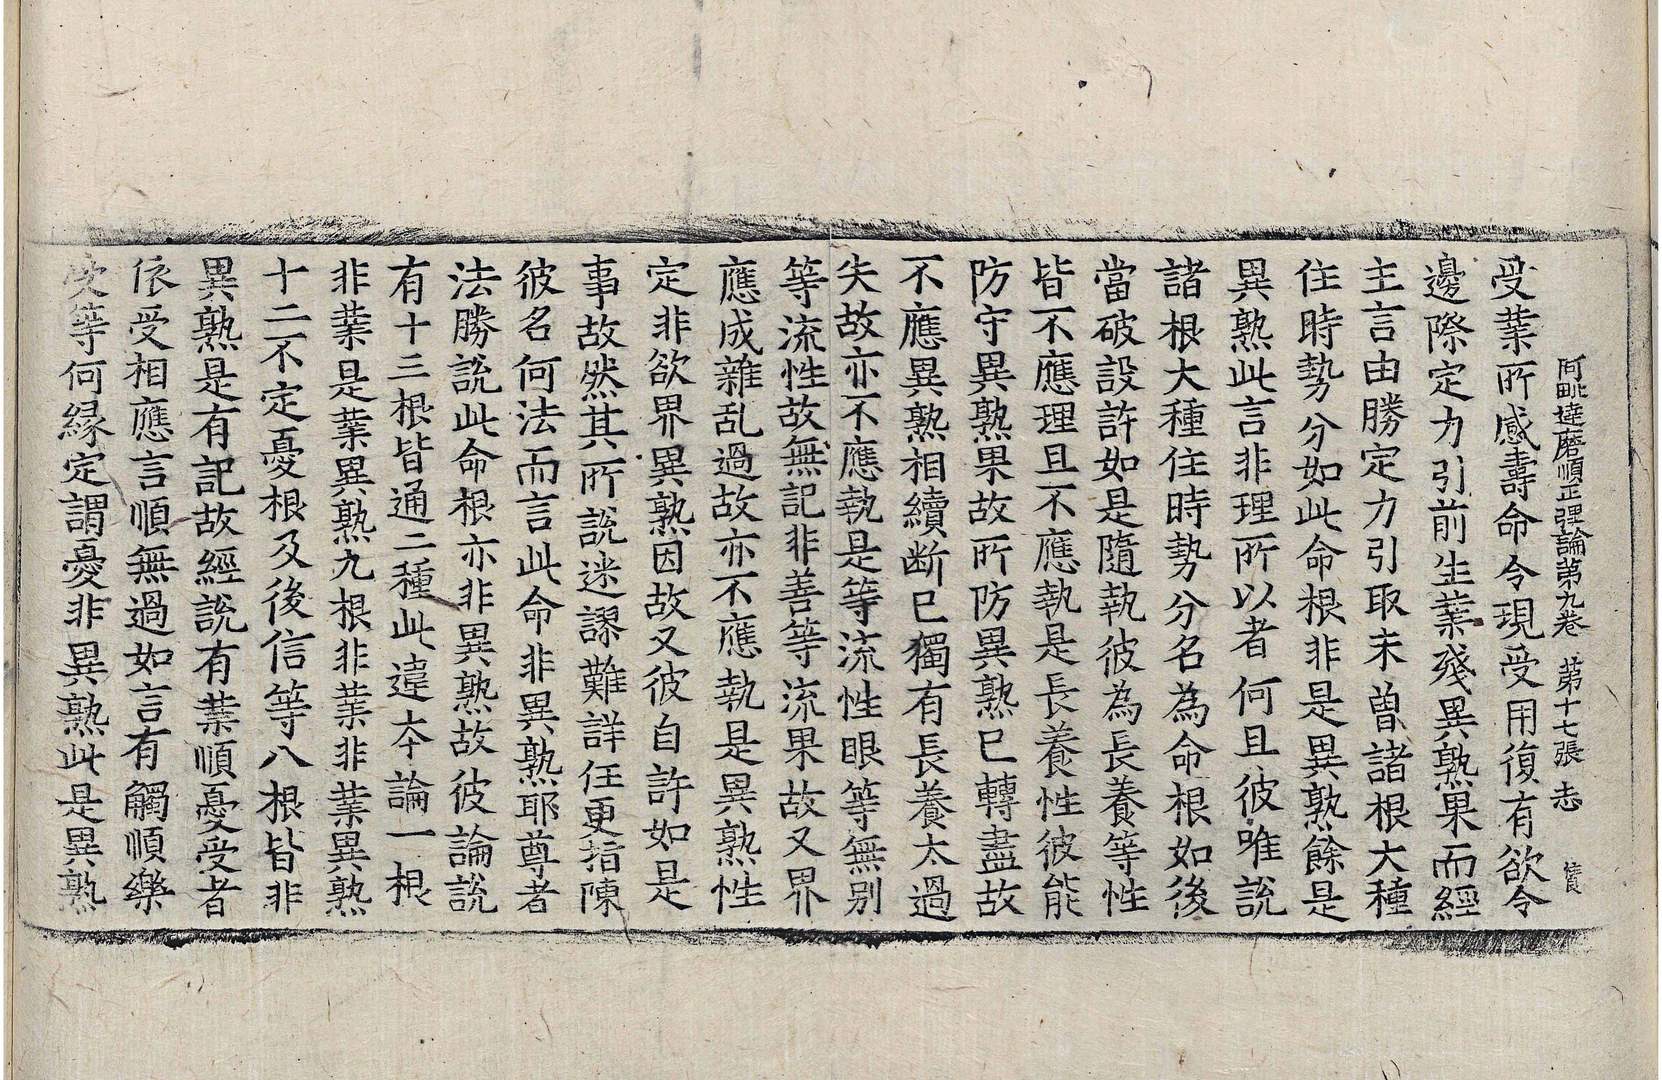 阿毗達磨順正理論第九卷 第十七張 志
受業所感壽命令現受用復有欲令
邊際定力引前生業殘異熟果而經
主言由勝定力引取未曾諸根大種
住時勢分如此命根非是異熟餘是
異熟此言非理所以者何且彼唯說
諸根大種住時勢分名為命根如後
當破設許如是隨執彼為長養等性
皆不應理且不應執是長養性彼能
防守異熟果故所防異熟已轉盡故
不應異熟相續断已獨有長養太過
失故亦不應執是等流性眼等無別
等流性故無記非善等流果故又界
應成雜乱過故亦不應執是異熟性
定非欲界異熟因故又彼自許如是
事故然其所說迷謬難詳任更指陳
彼名何法而言此命非異熟耶尊者
法勝說此命根亦非異熟故彼論說
有十三根皆通二種此違本論一根
非業是業異熟九根非業非業異熟
十二不定憂根及後信等八根皆非
異熟是有記故經說有業順憂受者
依受相應言順無過如言有觸順樂
受等何縁定謂憂非異熟此是異熟